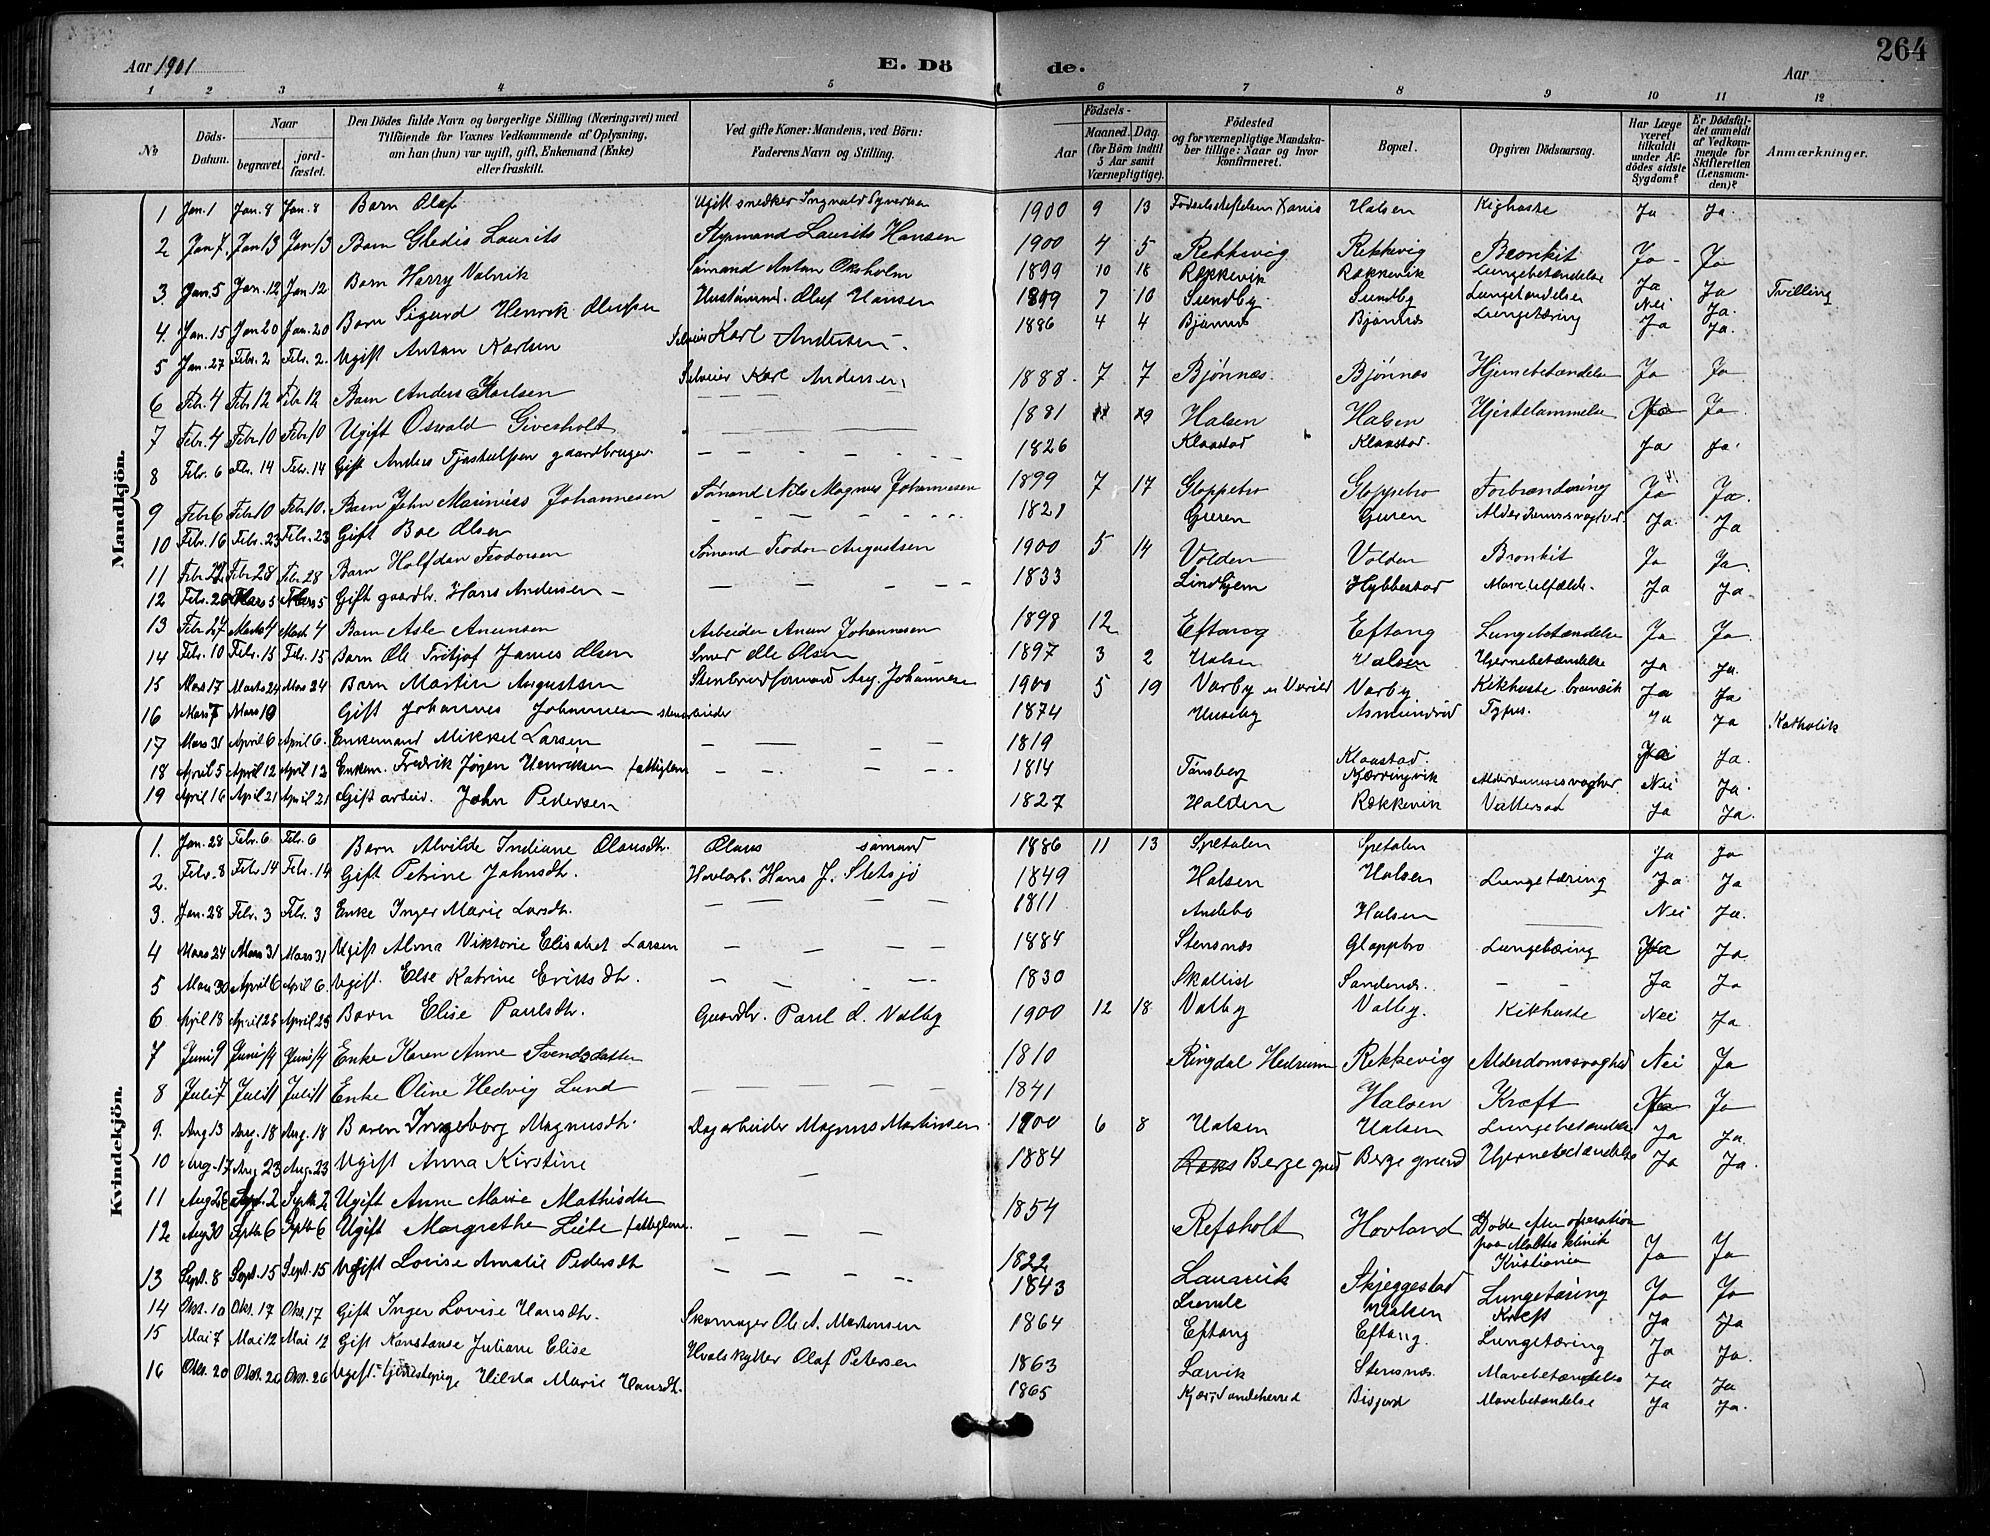 Aar 1901
E. Dö
de.
Aar
264
1 2 3 4 5 6 7 8 9 10 11 12
No
Döds-Datum.
Naar
begravet.
jord-fæstet.
Den Dödes fulde Navn og borgerlige Stilling (Næringsvei) med
Tilföiende for Voxnes Vedkommende af Oplysning,
om han (hun) var ugift, gift, Enkemand (Enke)
eller fraskilt.
Ved gifte Koner: Mandens, ved Börn:
Faderens Navn og Stilling.
Födsels-
Aar
Maaned. Dag.
(for Börn indtil
5 Aar samt
Værnepligtige).
Födested
og for værnepligtige Mandska-
ber tillige: Naar og hvor
konfirmeret.
Bopæl.
Opgiven Dödsaarsag.
Har Læge
været
tilkaldt
under Af-
dödes sidste
Sygdom?
Er Dödsfal-
det anmeldt
af Vedkom-
mende for
Skifteretten
(Lensman-
den)?
Anmærkninger.
Mandkjön.
1 Jan. 1 Jan. 8 Jan. 8 Barn Olaf Ugift snedker Ingvald Syvertsen 1900 9 13 Födselsstiftelsen Halsen Kighoste Ja Ja
2 Jan 7. Jan 13 Jan 13 Barn Gledis Laurits Styrmand Laurits Hansen 1900 4 5 Rekkevig Rekkevig Bronkit Ja Ja
3. Jan. 5 Jan. 12 Jan. 12 Barn Harry Valerik Sömand Antan Oksholm 1899 10 18 Rækkevik Rækkevik Lungebetændelse Ja Ja Tvilling
4. Jan. 15 Jan 20 Jan. 20 Barn Sigurd Henrik Olufsen Husmand. Oluf Hansen 1899 7 10 Sundby Sundby Lungebetændelse Nei Ja.
5 Jan. 27 Febr. 2 Febr. 2. Ugift Antan Karlsen Selveier Karl Andersen 1886 4 4 Bjönnes Bjönnes Lungetæring Ja Ja.
6 Febr. 4 Febr 12 Febr 12 Barn Anders Karlsen Selveier Karl Andersen 1888. 7 7 Bjönnæs. Bjönnæs Hjernebetændelse Ja Ja
7 Febr. 4 Febr. 10 Febr. 10 Ugift Oswald Givesholt 1881 29 Halsen Halsen Hjertelammelse Ja
8 Febr. 6 Febr. 14 Febr. 14 Gift Anders Tjostulfsen gaardbruger 1826 Klaastad Klaastad. Ja Ja
9 Febr 6 Febr 10 Febr. 10. Barn John Marinius Johannesen Sömand Nils Magnus Johannesen 1899 7 17 Gloppebro Gloppebro Forbrænding Ja Ja.
10 Febr. 16 Febr. 23 Febr. 23 Gift Boe Olsen 1821 Guren Guren Alderdomssvaghed. Ja. Ja
11 Febr. 22 Febr 28 Febr. 28 Barn Halfdan Teodorsen Sömand Teodor Augustsen 1900 5 14 Volden Volden Bronkit Ja Ja
12 Febr. Mars 5 Mars 5 Gift gaardbr. Hans Andersen 1833 Lindhjem Hybbestad Mavetilfælde. Ja Ja.
13 Febr. 27 Marts 4 Marts 4 Barn Asle Anunsen Arbeider Anun Johannesen 1898 12 Eftang Eftang Lungebetændelse Ja Ja
14 Febr. 10 Febr. 15 Febr. 15 Barn Ole Fritjof James Olsen Smed Olle Olsen 1897 3 2 Halsen Halsen Hjernebetændelse Ja Ja.
15 Mars 17 Marts 24 Mars 24 Barn Martin Augustsen Stenbrudformand Aug. Johannesen 1900 5 19 Varby Varby Kikhoste Ja Ja
16 Mars 7 Mars 10 Gift Johannes Johannesen stenarbeider 1874 Huseby Asmundrød Typus. Ja Ja Katholik
17 Mars 31 April 6 April 6. Enkemand Mikkel Larsen 1819 Klaastad. Ja.
18 April 5 April 12 April 12 Enkem. Fredrik Jörgen Henriksen fattiglem 1814 Tönsberg Kjærringvik Alderdomssvaghed Nei Ja.
19 April 16 April 21 April 21 Gift arbeid. John Pedersen 1827 Holden Rækkevik Vattersot Ja Ja.
Kvindekjön.
1. Jan. 28 Febr. 6 Febr. 6 Barn Alvilde Indiane Olausdtr. Olaus sömand 1886 11 13 Spetalen Spetalen Ja Ja
2. Febr. 8 Febr. 14 Febr. 14 Gift Petrine Johnsdtr. Havlarb. Hans J. Sletsjö 1849 Halsen Halsen Lungetæring Ja Ja
3. Jan. 28 Febr. 3 Febr. 3 Enke Inger Marie Larsdtr. 1811 Andebo Halsen Nei Ja.
4 Mars 24 Mars 31 Mars 31 Ugift Alma Viktorie Elisabet Larsen 1884 Stensnæs Gloppbro Lungetæring Ja
5 Mars 30 April 6 April 6. Ugift. Else Katrine Eriksdtr. 1830 Skallist Sandenæs. Ja Ja
6 April 18 April 25 April 25 Barn Elise Paulsdtr. Gaardbr. Paul O. Valby 1900 12 18 Valby Valby. Kikhoste Nei Ja.
7 Juni 9 Juni 14 Juni 14 Enke Karen Anne Svendsdatter 1810 Ringdal Hedrum Rekkevig Alderdomssvaghed Nei Ja
8 Juli 7 Juli 11 Juli 11 Enke Oline Hedvig Lund 1841 Halsen Kræft Ja
9. Aug 13 Aug. 18 Aug. 18 Baren Ingeborg Magnusdtr. Dagarbeider Magnus Martinsen 1900 6 8 Halsen Halsen Lungebetændelse Ja Ja.
10 Aug. 17 Aug 23 Aug. 23 Ugift Anna Kirstine 1884 Bergegrend Bergegrend Hjernebetændelse Ja Ja.
11 Aug 26 Sept. 2 Septr. 2 Ugift Anne Marie Mathisdtr 1854 Refsholt Hovland Döde efter operation paa Malthes klinik Kristiania Ja Ja
12 Aug 30 Septr 6 Septr 6 Ugift Margrethe Liete fattiglem. 1822 Laurvik Skjeggestad Lungetæring Ja Ja
13 Sept. 8 Sept. 15 Sept. 15 Ugift Lovise Amalie Pedersdtr 1843 Lunde Halsen Kræft Ja Ja
14 Okt. 10 Okt. 17 Okt. 17 Gift Inger Lovise Hansdtr. Skomager Ole A. Martensen 1864 Eftang Eftang. Lungetæring Ja Ja.
15 Mai 7 Mai 12 Mai 12 Gift Konstanse Juliane Elise Hvalskytter Olaf Petersen 1863 Larvik Stensnæs. Mavebetændelse Ja Ja
16 Okt. 20 Okt. 26 Okt. 26 Ugift Tjenestepige Hilda Marie Hansdtr. 1865 Kjær, Sandeherred Bisjord Mavebetændelse Ja Ja.